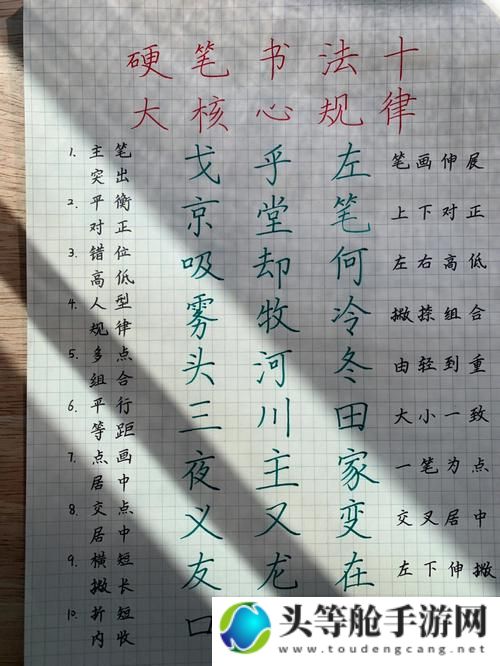 硬笔书法十
大核心规律
1. 主笔
突出
戈 乎 左
笔画伸展
2. 平衡
对正
京 堂 笔
上下对正
3. 错位
高低
吸 却 何
左右高低
4. 人型
规律
雾 牧 冷
撇捺组合
5. 多点
组合
头 河 冬
由轻到重
6. 平行
等距
三 川 田
大小一致
7. 点画
居中
夜 主 家
一笔为点
8. 交点
居中
义 又 变
交叉居中
9. 横短
撇长
友 龙 在
左下伸撇
10. 折短
内收
口
头等舱手游网
www.toudengcang.net